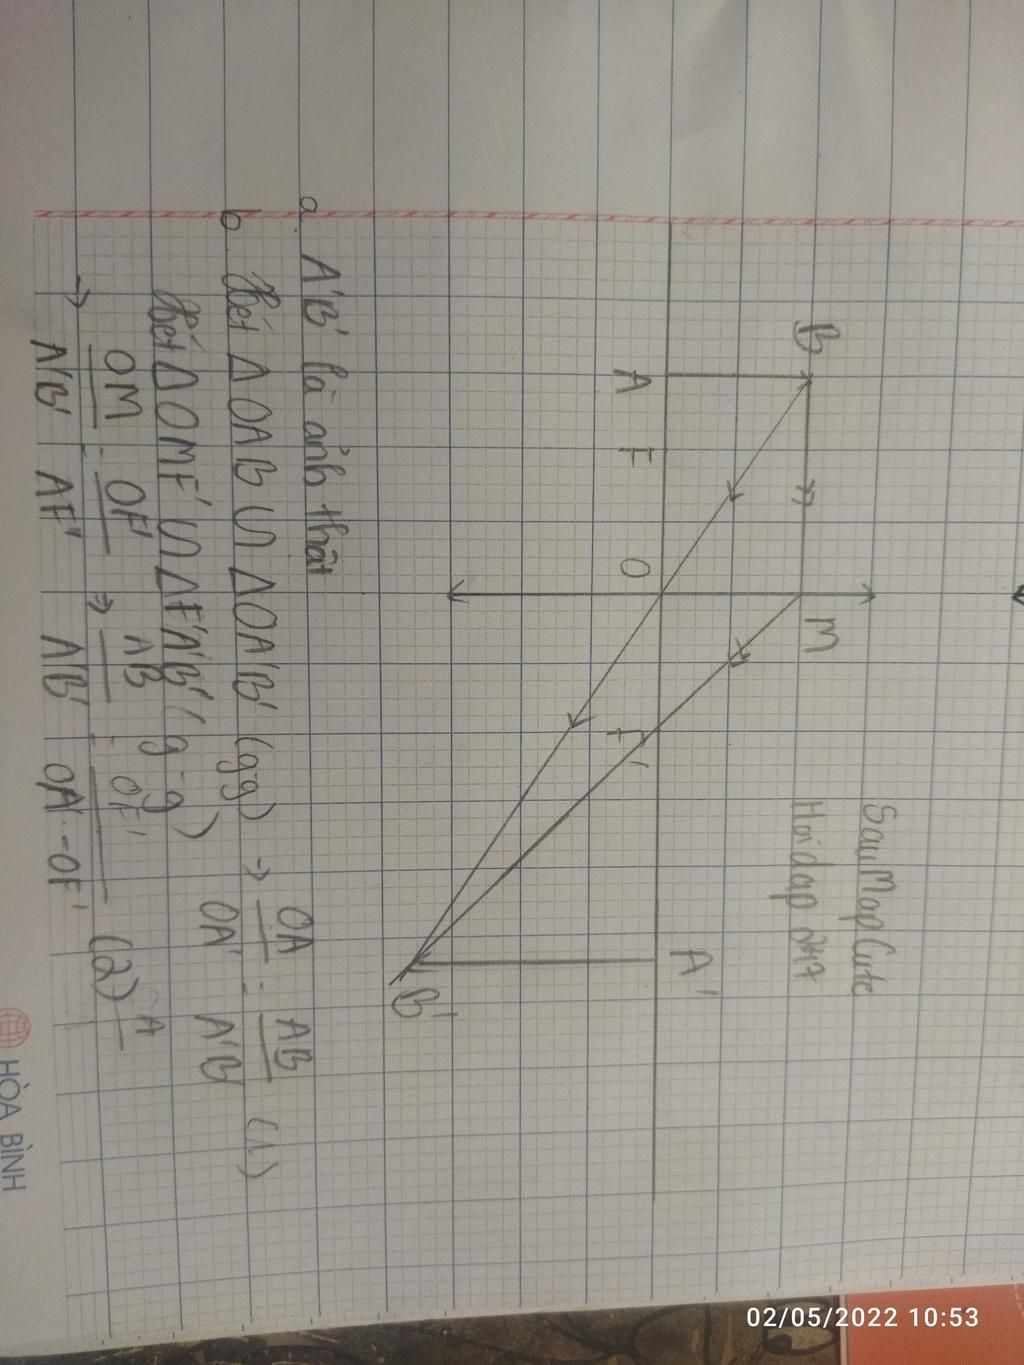 SauMapCute
Hoidap 247
B
M
A
F
O
F'
A'
B'
a. A'B' là ảnh thật
b. Xét Δ OAB ∽ Δ OA'B' (gg) → OA / OA' = AB / A'B' (1)
Xét Δ OMF' ∽ Δ F'A'B' (g-g)
→ OM / A'B' = OF' / AF' ⇒ AB / A'B' = OF' / OA' - OF' (2)
A
HÒA BÌNH
02/05/2022 10:53